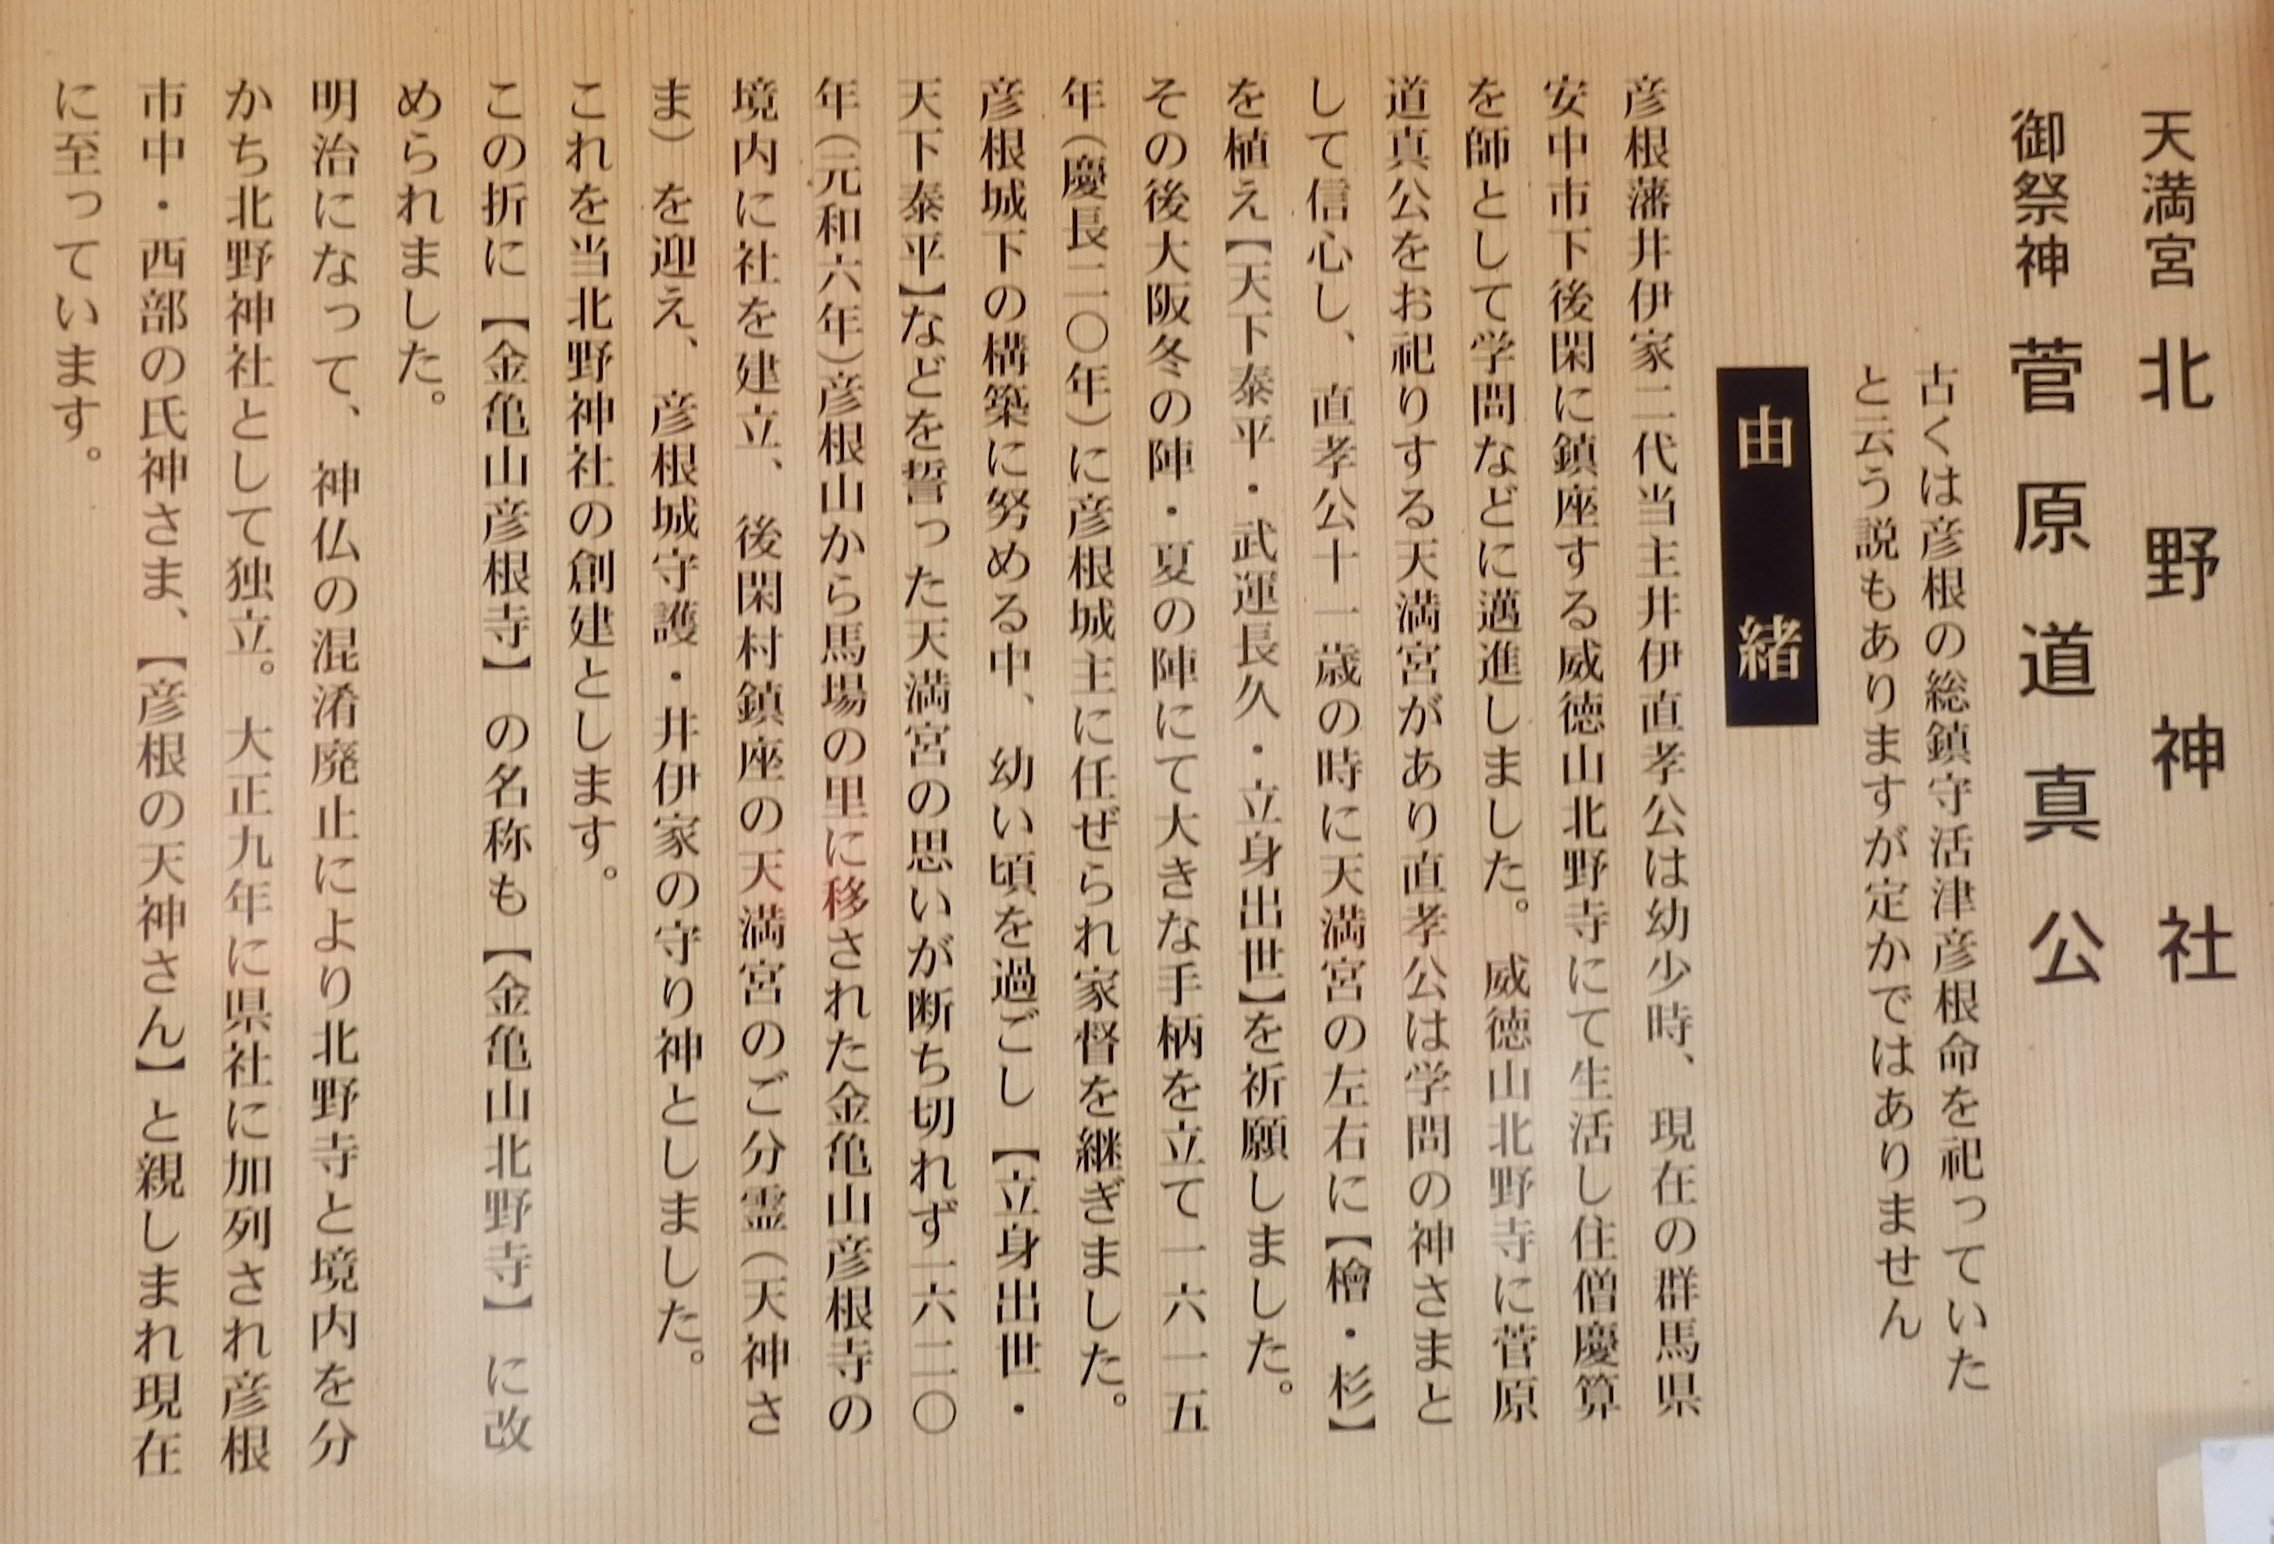 天満宮 北野神社
御祭神 菅原道真公
古くは彦根の総鎮守活津彦根命を祀っていた
と云う説もありますが定かではありません
由緒
彦根藩井伊家二代当主井伊直孝公は幼少時、現在の群馬県
安中市下後閑に鎮座する威徳山北野寺にて生活し住僧慶算
を師として学問などに邁進しました。威徳山北野寺に菅原
道真公をお祀りする天満宮があり直孝公は学問の神さまと
して信心し、直孝公十一歳の時に天満宮の左右に【檜・杉】
を植え【天下泰平・武運長久・立身出世】を祈願しました。
その後大阪冬の陣・夏の陣にて大きな手柄を立て一六一五
年(慶長二〇年)に彦根城主に任ぜられ家督を継ぎました。
彦根城下の構築に努める中、幼い頃を過ごし【立身出世・
天下泰平】などを誓った天満宮の思いが断ち切れず一六二〇
年(元和六年)彦根山から馬場の里に移された金亀山彦根寺の
境内に社を建立、後閑村鎮座の天満宮のご分霊(天神さ
ま)を迎え、彦根城守護・井伊家の守り神としました。
これを当北野神社の創建とします。
この折に【金亀山彦根寺】の名称も【金亀山北野寺】に改
められました。
明治になって、神仏の混淆廃止により北野寺と境内を分
かち北野神社として独立。大正九年に県社に加列され彦根
市中・西部の氏神さま、【彦根の天神さん】と親しまれ現在
に至っています。